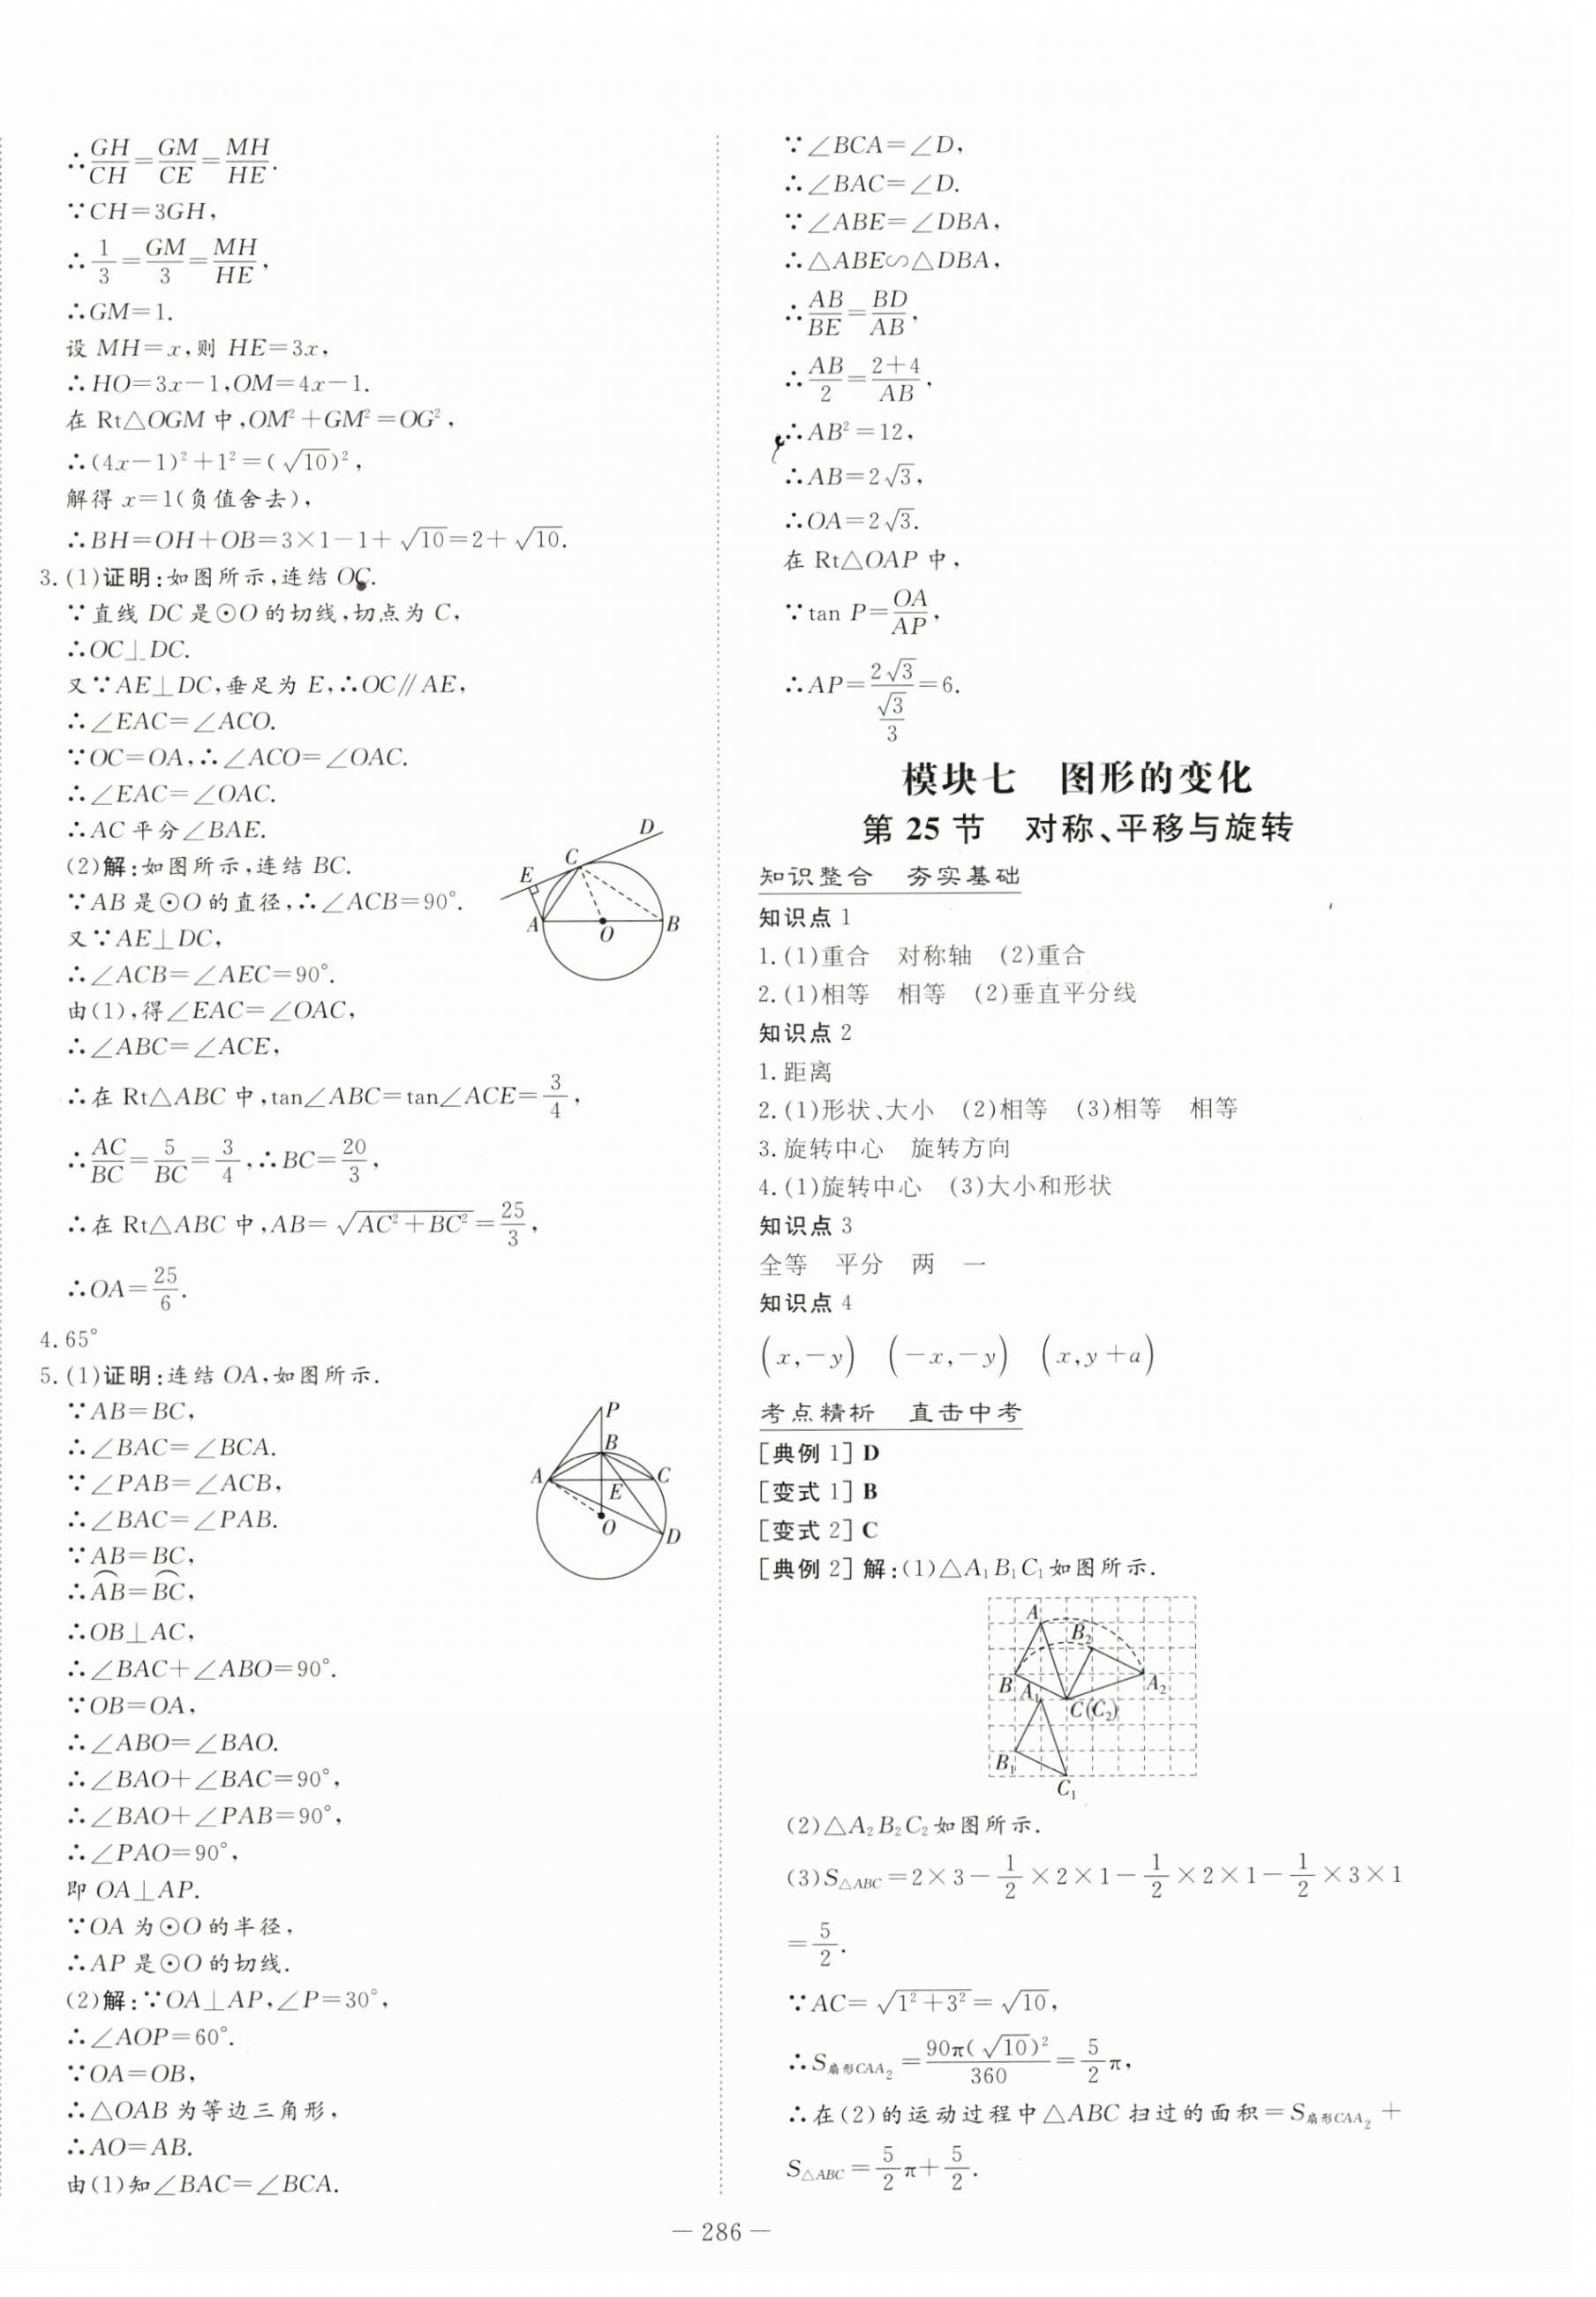 ∴GH/CH=GM/CE=MH/HE.
∵CH=3GH,
∴1/3=GM/3=MH/HE,
∴GM=1.
设 MH=x,则 HE=3x,
∴HO=3x−1,OM=4x−1.
在 Rt△OGM 中,OM²+GM²=OG²,
∴(4x−1)²+1²=(√10)²,
解得 x=1(负值舍去),
∴BH=OH+OB=3×1−1+√10=2+√10.
3.(1)证明:如图所示,连结 OC.
∵直线 DC 是⊙O 的切线,切点为 C,
∴OC⊥DC.
又∵AE⊥DC,垂足为 E,∴OC∥AE,
∴∠EAC=∠ACO.
∵OC=OA,∴∠ACO=∠OAC.
∴∠EAC=∠OAC.
∴AC 平分∠BAE.
(2)解:如图所示,连结 BC.
∵AB 是⊙O 的直径,∴∠ACB=90°.
又∵AE⊥DC,
∴∠ACB=∠AEC=90°.
由(1),得∠EAC=∠OAC,
∴∠ABC=∠ACE,
D
C
E
A
O
B
∴在 Rt△ABC 中,tan∠ABC=tan∠ACE=3/4,
∴AC/BC=5/BC=3/4,∴BC=20/3,
∴在 Rt△ABC 中,AB=√(AC²+BC²)=25/3,
∴OA=25/6.
4.65°
5.(1)证明:连结 OA,如图所示.
∵AB=BC,
∴∠BAC=∠BCA.
∵∠PAB=∠ACB,
∴∠BAC=∠PAB.
∵AB=BC,
∴⌒AB=⌒BC,
∴OB⊥AC,
∴∠BAC+∠ABO=90°.
∵OB=OA,
∴∠ABO=∠BAO.
∴∠BAO+∠BAC=90°,
∴∠BAO+∠PAB=90°,
∴∠PAO=90°,
即 OA⊥AP.
∵OA 为⊙O 的半径,
∴AP 是⊙O 的切线.
P
B
A
C
E
O
D
(2)解:∵OA⊥AP,∠P=30°,
∴∠AOP=60°.
∵OA=OB,
∴△OAB 为等边三角形,
∴AO=AB.
由(1)知∠BAC=∠BCA.
∵∠BCA=∠D,
∴∠BAC=∠D.
∵∠ABE=∠DBA,
∴△ABE∽△DBA,
∴AB/BE=BD/AB,
∴AB/2=(2+4)/AB,
∴AB²=12,
∴AB=2√3,
∴OA=2√3.
在 Rt△OAP 中,
∵tan P=OA/AP,
∴AP=2√3/(√3/3)=6.
模块七 图形的变化
第 25 节 对称、平移与旋转
知识整合 夯实基础
知识点 1
1.(1)重合 对称轴 (2)重合
2.(1)相等 相等 (2)垂直平分线
知识点 2
1.距离
2.(1)形状、大小 (2)相等 (3)相等 相等
3.旋转中心 旋转方向
4.(1)旋转中心 (3)大小和形状
知识点 3
全等 平分 两 一
知识点 4
(x,−y) (−x,−y) (x,y+a)
考点精析 直击中考
[典例 1] D
[变式 1] B
[变式 2] C
[典例 2] 解:(1)△A₁B₁C₁如图所示.
A
B₂
B
A₁
A₂
C(C₂)
B₁
C₁
(2)△A₂B₂C₂如图所示.
(3)S△ABC=2×3−1/2×2×1−1/2×2×1−1/2×3×1
=5/2.
∵AC=√(1²+3²)=√10,
∴S扇形CAA₂=90π(√10)²/360=5/2π,
∴在(2)的运动过程中△ABC 扫过的面积=S扇形CAA₂+
S△ABC=5/2π+5/2.
— 286 —